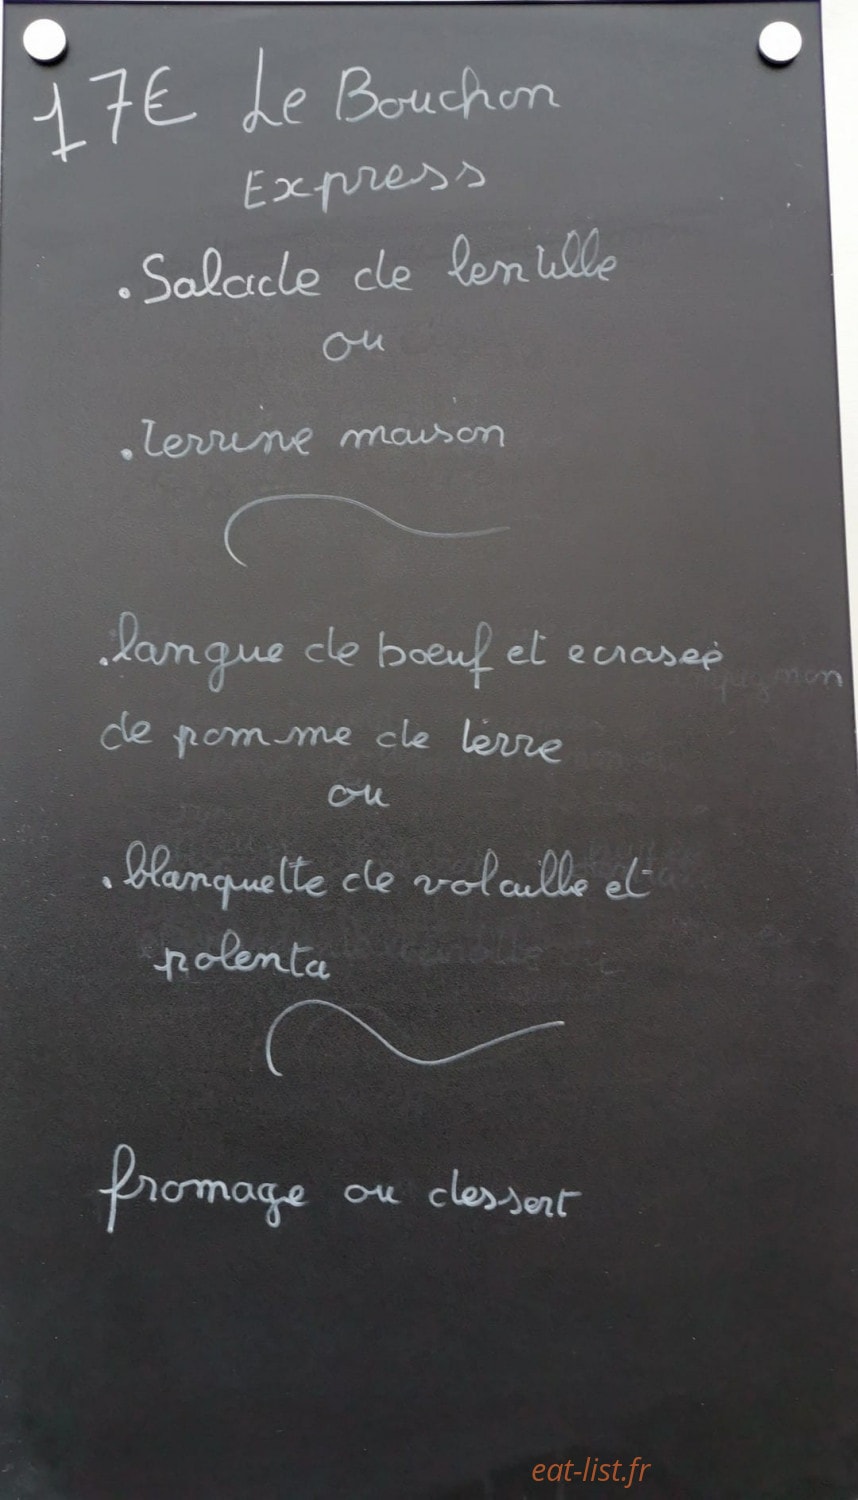 17€ Le Bouchon
Express
. Salade de lentille
ou
. Terrine maison
. langue de bœuf et ecraseé
de pomme de terre
ou
. blanquette de volaille et
polenta
fromage ou dessert
eat-list.fr